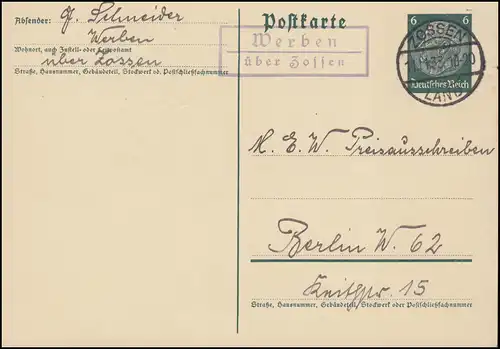 Absender: G. Schneider
Werben
Wohnort, auch Zustell- oder Leitpostamt
über Zossen
Straße, Hausnummer, Gebäudeteil, Stockwerk od. Postschließfachnummer
Postkarte
Werben
über Zossen
6 6
Deutsches Reich
ZOSSEN
LAND
M. E. W. Preisausschreiben
Berlin W. 62
15
Straße, Hausnummer, Gebäudeteil, Stockwerk oder Postschließfachnummer